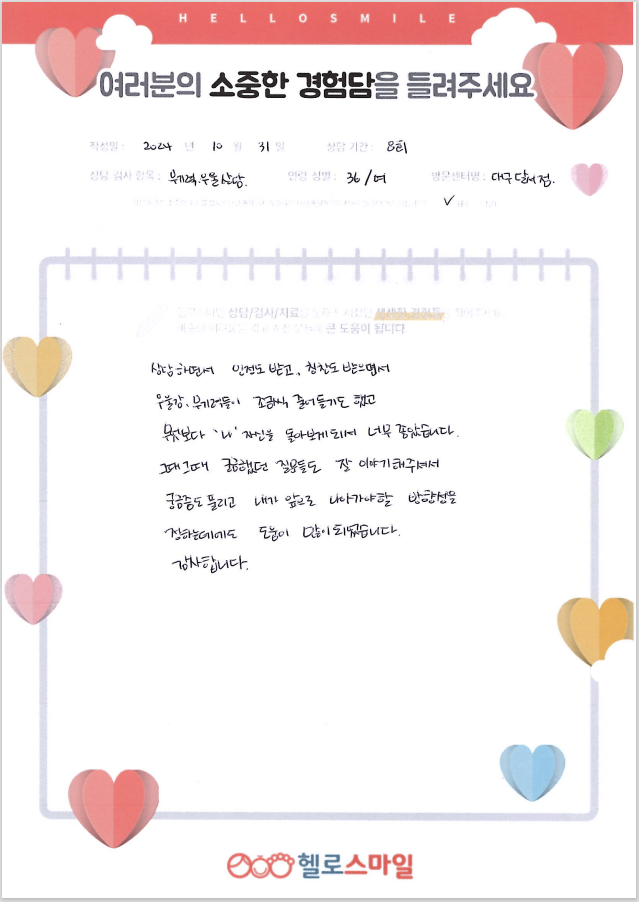 HELLOSMILE
여러분의 소중한 경험담을 들려주세요
작성일 : 2024 년 10 월 31 일 상담 기간 : 8회
상담 검사 항목 : 무기력, 우울 상담. 연령 성별 : 36 / 여 방문센터명 : 대구 달서점.
상담/검사/치료
큰 도움이 됩니다
상담 하면서 인정도 받고, 칭찬도 받으면서
우울감, 무기력들이 조금씩 줄어들기도 했고
무엇보다 '나' 자신을 돌아보게 되어서 너무 좋았습니다.
그때 그때 궁금했던 질문들도 잘 이야기해주셔서
궁금증도 풀리고 내가 앞으로 나아가야할 방향성을
정하는데에도 도움이 많이 되었습니다.
감사합니다.
헬로스마일